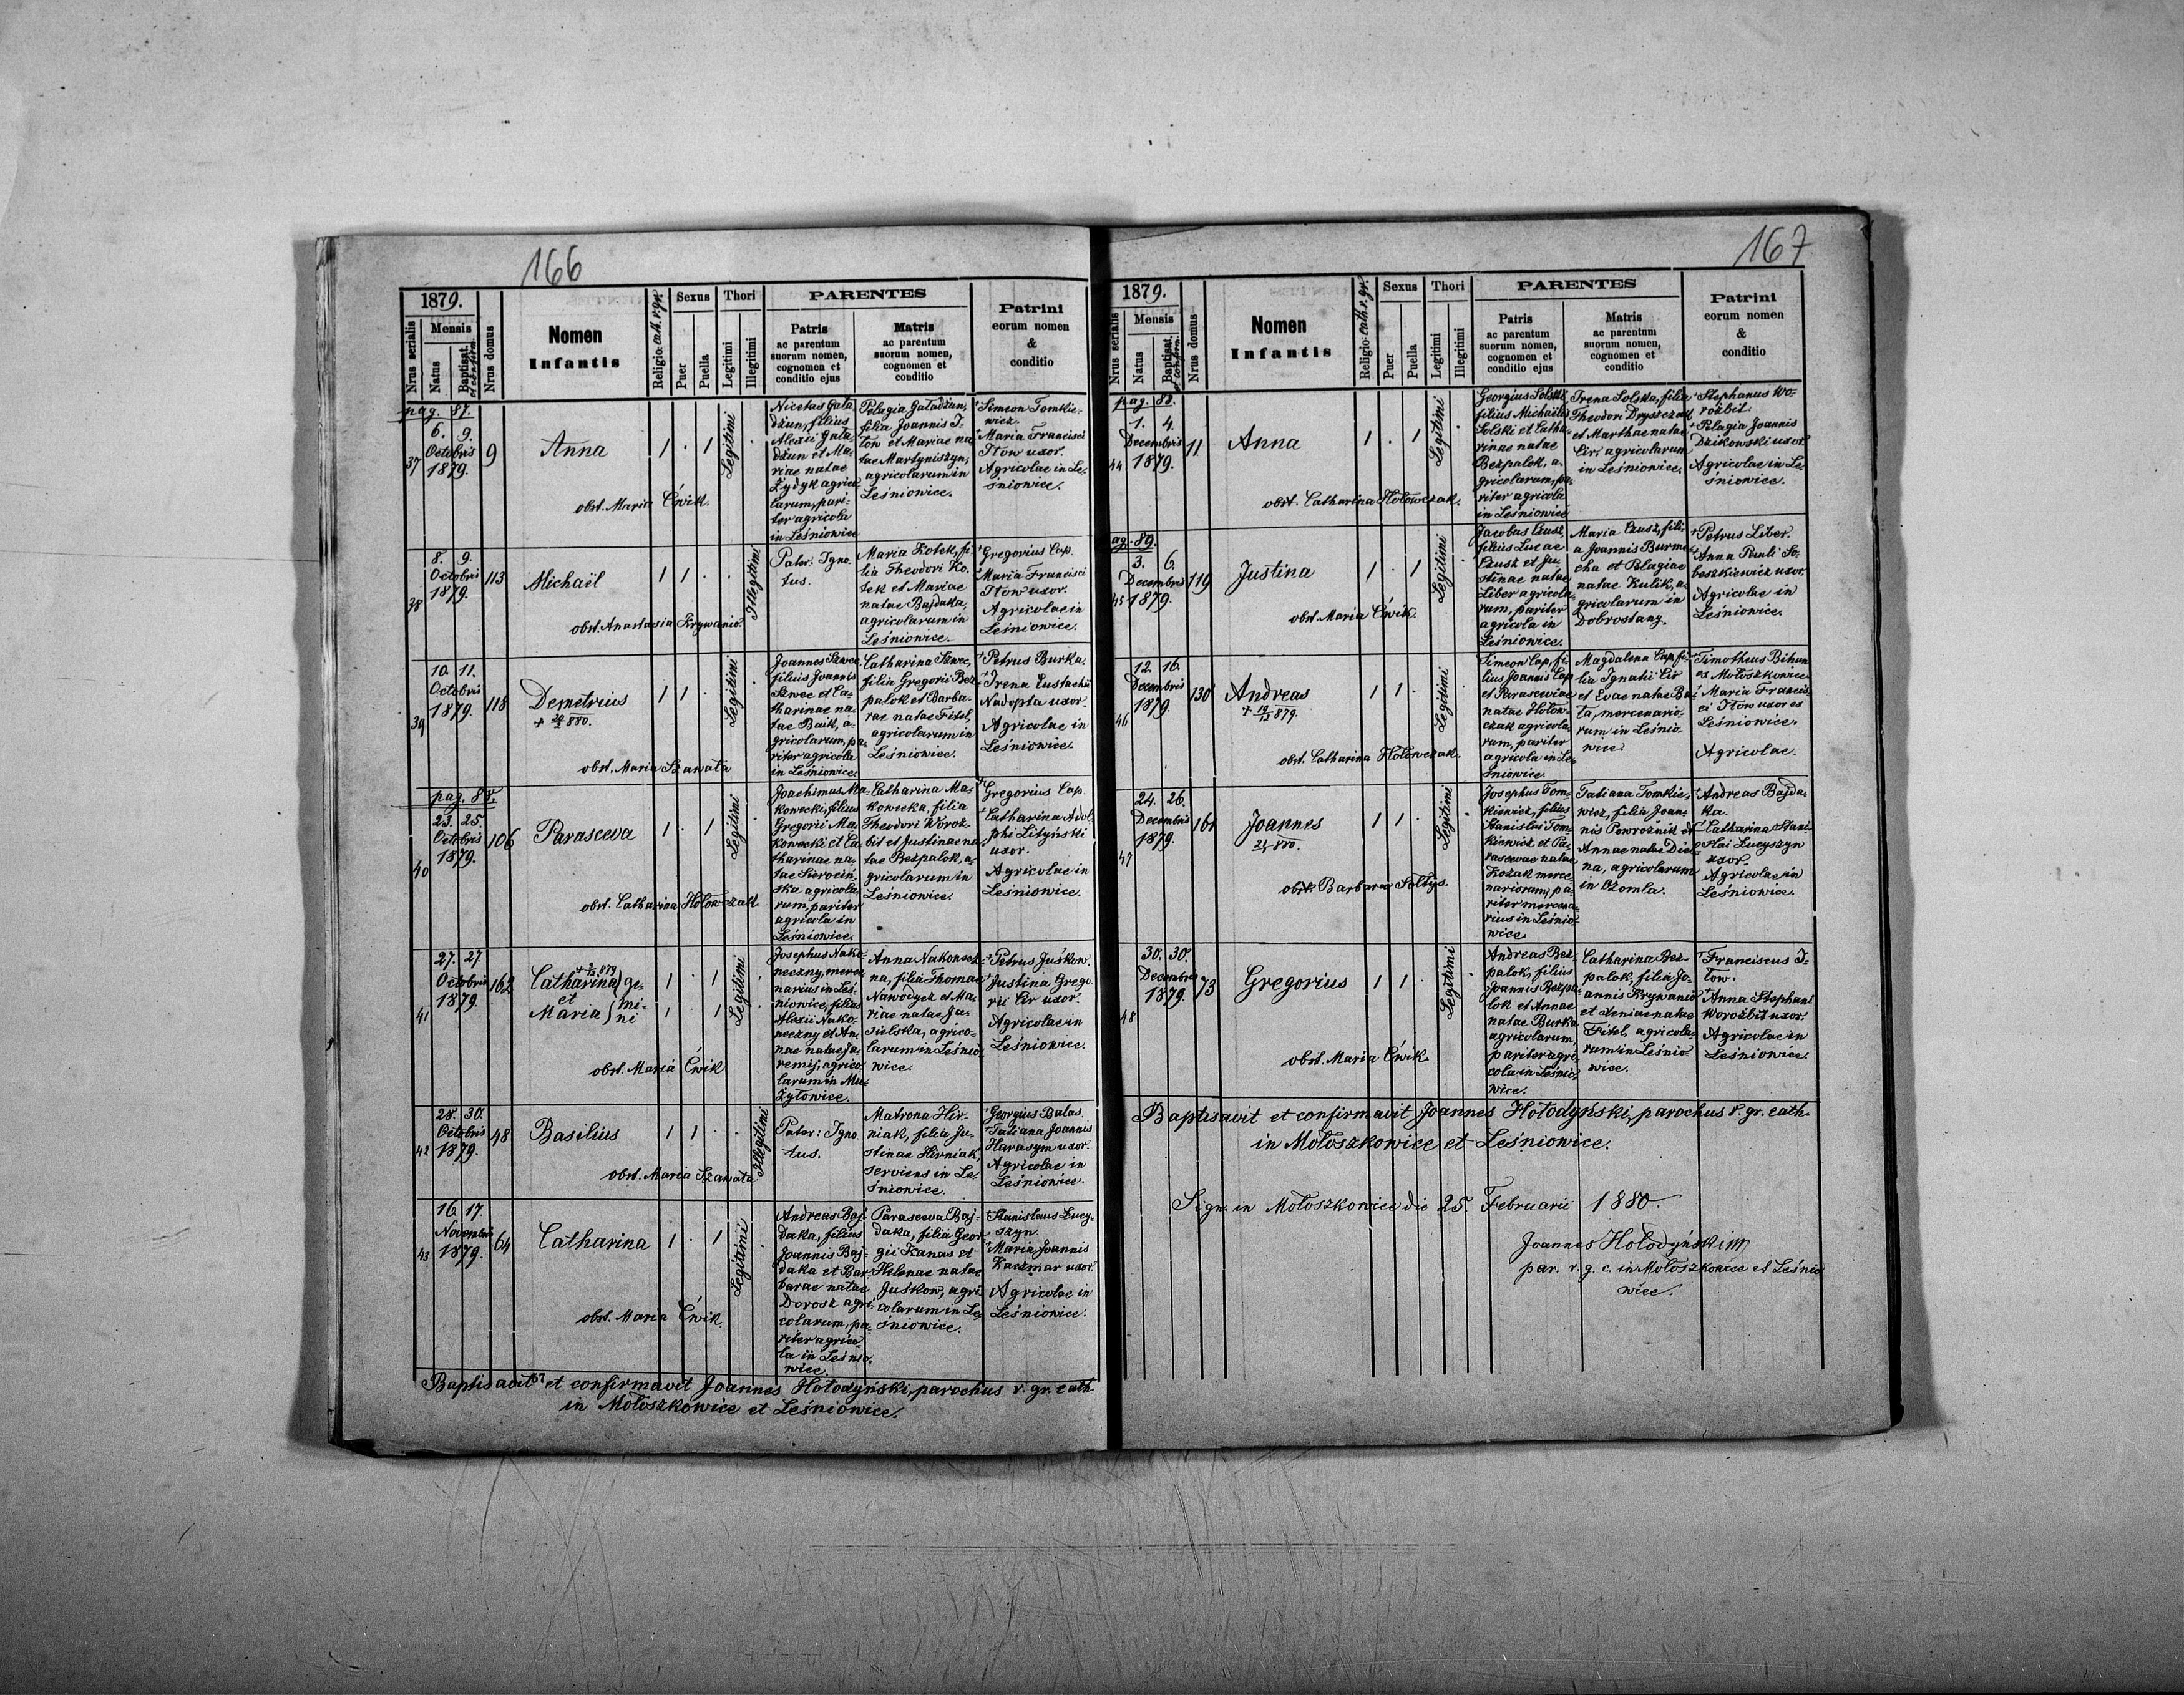 166
1879.
Nrus serialis
Mensis
Natus
Baptisat.
et confirm.
Nrus domus
Nomen
Infantis
Religio: cath. r. gr.
Sexus
Puer
Puella
Thori
Legitimi
Illegitimi
PARENTES
Patris
ac parentum
suorum nomen,
cognomen et
conditio ejus
Matris
ac parentum
suorum nomen,
cognomen et
conditio
Patrini
eorum nomen
&
conditio
pag. 87.
37
6. 9.
Octobris
1879.
9
Anna
obst. Maria Ćwik.
1 . 1
Legitimi
Nicetas Gała
dżun, filius
Alexii Gała
dżun et Ma
riae natae
Żydyk agrico
larum, pari
ter agricola
in Leśniowice
Pelagia Gaładżun,
filia Joannis I-
tow et Mariae na
tae Martyniszyn,
agricolarum in
Leśniowice.
Simeon Tomkie-
wicz.
Maria Francisci
Itow uxor.
Agricolae in Le-
śniowice.
38
8. 9.
Octobris
1879.
113
Michaël
obst. Anastasia Krywanio.
1 1 . .
Illegitimi
Pater: Igno
tus.
Maria Kotek, fi
lia Theodori Ko
tek et Mariae
natae Bajdaka,
agricolarum in
Leśniowice.
Gregorius Cap.
Maria Francisci
Itow uxor.
Agricolae in
Leśniowice.
39
10. 11.
Octobris
1879.
118
Demetrius
880.
obst. Maria Szawata
1 1 .
Legitimi
Joannes Szwec,
filius Joannis
Szwec et Ca-
tharinae na
tae Baik, a-
gricolarum, pa-
riter agricola
in Leśniowice
Catharina Szwec,
filia Gregorii Bez
palok et Barba-
rae natae Fitel,
agricolarum in
Leśniowice.
Petrus Burka.
Irena Eustachii
Nadopta uxor
Agricolae in
Leśniowice.
pag. 88.
40
23. 25.
Octobris
1879.
106
Parasceva
obst. Catharina Hołowczak
1 . 1
Legitimi
Joachimus Ma-
kowecki, filius
Gregorii Ma
kowecki et Ca
tharinae na,
tae Sierocin-
ska agricola
rum, pariter
agricola in
Leśniowice.
Catharina Ma-
kowecka, filia
Theodori Woroż-
bit et Justinae na
tae Bezpalok, a-
gricolarum in
Leśniowice.
Gregorius Cap.
Catharina Adol
phi Lityński
uxor.
Agricolae in
Leśniowice.
41
27. 27
Octobris
1879.
162
879
Catharina) ge-
et mi-
Maria ni
obst. Maria Ćwik
1 . 1 .
1 . 1
Legitimi
Josephus Nako-
neczny, merce
narius in Leś-
niowice, filius
Alexii Nako-
neczny et An-
nae natae Ja-
remij, agrico
larum in Mu-
żyłowice.
Anna Nakonecz-
na, filia Thomae
Nawodycz et Ma-
riae natae Ja-
sielska, agrico-
larum in Leśnio
wice.
Petrus Juśkow.
Justina Grego
rii Cir uxor.
Agricolae in
Leśniowice.
42
28. 30.
Octobris
1879.
48
Basilius
obst. Maria Szawata
1 1 . .
Illegitimi
Pater: Igno.
tus.
Matrona Hir-
niak, filia Ju-
stinae Hirniak,
serviens in Le-
śniowice.
Georgius Balas.
Tatiana Joannis
Harasym uxor.
Agricolae in
Leśniowice.
43
16. 17.
Novembris
1879.
64
Catharina
obst. Maria Ćwik.
1 . 1 .
Legitimi
Andreas Baj-
daka, filius
Joannis Baj-
daka et Bar
barae natae
Dorosz agri
colarum, pa-
riter agrico
la in Leśnio,
wice.
Parasceva Baj-
daka, filia Geor
gii Kanas et
Helenae natae
Juśkow, agri
colarum in Le-
śniowice.
Stanislaus Łucy-
szyn.
Maria Joannis
Kaczmar uxor.
Agricolae in
Leśniowice.
Baptisavit et confirmavit Joannes Hołodyński, parochus r. gr. cath
in Mołoszkowice et Leśniowice.
167
1879.
Nrus serialis
Mensis
Natus
Baptisat.
et confirm.
Nrus domus
Nomen
Infantis
Religio: cath. r. gr.
Sexus
Puer
Puella
Thori
Legitimi
Illegitimi
PARENTES
Patris
ac parentum
suorum nomen,
cognomen et
conditio ejus
Matris
ac parentum
suorum nomen,
cognomen et
conditio
Patrini
eorum nomen
&
conditio
pag. 88.
44
1. 4.
Decembris
1879.
11
Anna
obst. Catharina Hołowczak.
1 . 1 .
Legitimi
Georgius Solski,
filius Michaëlis
Solski et Catha-
rinae natae
Bezpalok, a-
gricolarum, pa-
riter agricola
in Leśniowice
Irena Solska, filia
Theodori Dryszczak
et Marthae natae
Cir, agricolarum
in Leśniowice.
Stephanus Wo-
rożbit.
Pelagia Joannis
Dzikowski uxor.
Agricolae in Le-
śniowice.
pag. 89.
45
3. 6.
Decembris
1879.
119
Justina
obst. Maria Ćwik.
1 . 1 .
Legitimi
Jacobus Czusz,
filius Lucae
Czusz et Ju-
stinae natae
Liber agricola-
rum, pariter
agricola in
Leśniowice.
Maria Czusz, fili-
a Joannis Burme-
cha et Pelagiae
natae Kulik, a-
gricolarum in
Dobrostany.
Petrus Liber.
Anna Pauli So-
beszkiewicz uxor.
Agricolae in
Leśniowice.
46
12. 16.
Decembris
1879.
130
Andreas
879.
obst. Catharina Hołowczak.
1 1 .
Legitimi
Simeon Cap, fi-
lius Joannis Cap
et Parascevae
natae Hołow-
czak agricola-
rum, pariter
agricola in Le-
śniowice.
Magdalena Cap, fi-
lia Ignatii Cir
et Evae natae Ba-
ta, mercenario-
rum in Leśnio-
wice
Timotheus Bihun
ex Mołoszkowice
Maria Francis
ci Itow uxor es
Leśniowice.
Agricolae.
47
24. 26.
Decembris
1879.
161
Joannes
880.
obst. Barbara Sołtys.
1 1 .
Legitimi
Josephus Tom-
kiewicz, filius
Stanislai Tom
kiewicz et Pa-
rascevae natae
Kozak merce-
nariorum, pa-
riter mercena-
rius in Leśnio-
wice
Tatiana Tomkie-
wicz, filia Joan-
nis Powroźnik et
Annae natae Diede
na, agricolarum
in Czomla.
Andreas Bajda-
ka.
Catharina Stani-
slai Łucyszyn
uxor.
Agricolae in
Leśniowice.
48
30. 30.
Decembris
1879.
73
Gregorius
obst. Maria Ćwik.
1 1 .
Legitimi
Andreas Bez-
palok, filius
Joannis Bezpa-
lok et Annae
natae Burka,
agricolarum,
pariter agri
cola in Leśnio-
wice.
Catharina Bez-
palok, filia Jo-
annis Krywanio
et Xeniae natae
Fitel, agricola-
rum in Leśnio-
wice.
Franciscus I-
tow.
Anna Stephani
Worożbit uxor.
Agricolae in
Leśniowice.
Baptisavit et confirmavit Joannes Hołodyński, parochus r. gr. cath.
in Mołoszkowice et Leśniowice.
Sign. in Mołoszkowice die 25. Februarii 1880.
Joannes Hołodyński
par. r. g. c. in Mołoszkowice et Leśnio
wice.